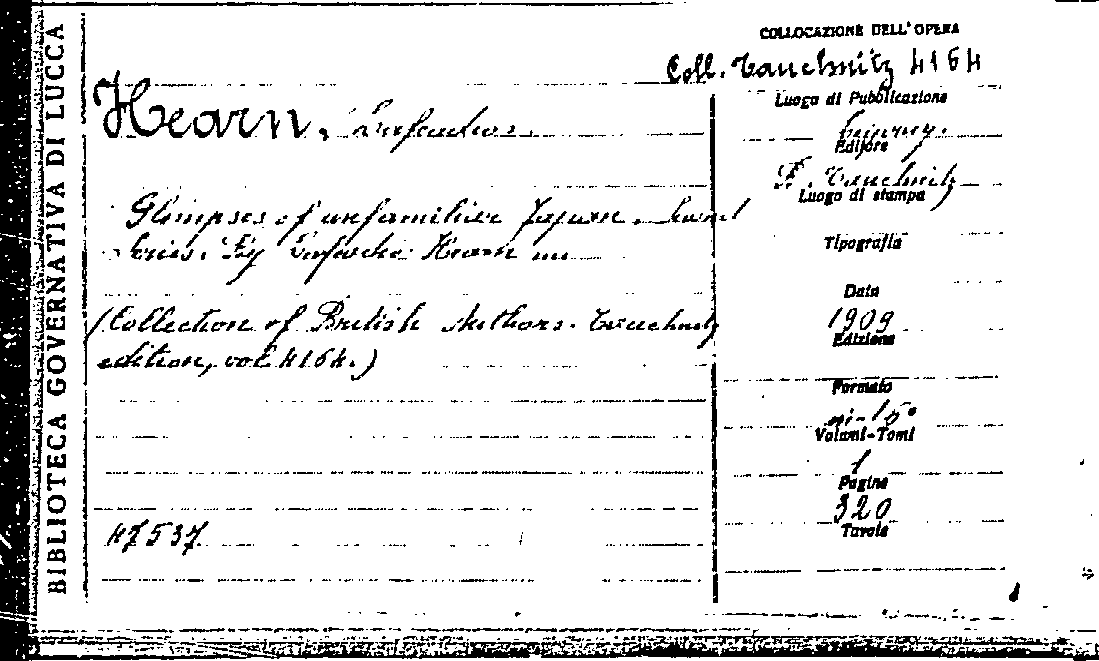 BIBLIOTECA GOVERNATIVA DI LUCCA
COLLOCAZIONE DELL'OPERA
Coll. Tauchnitz 4164
Hearn, Lafcadio
Glimpses of unfamiliar Japan. Second
Series. By Lafcadio Hearn
(Collection of British Authors. Tauchnitz
edition, vol. 4164.)
47537
Luogo di Pubblicazione
Leipzig.
Editore
Tauchnitz
Luogo di stampa
Tipografia
Data
1909
Edizione
Formato
in-16°
Volumi-Tomi
1
Pagine
320
Tavole